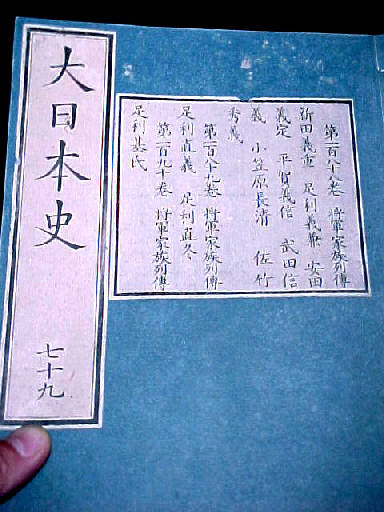 大日本史
七十九
第一百八十八卷 將軍家族列傳
新田義重 足利義兼 安田
義定 平賀義信 武田信
義 小笠原長清 佐竹
秀義
第一百八十九卷 將軍家族列傳
足利直義 足利直冬
第一百九十卷 將軍家族列傳
足利基氏